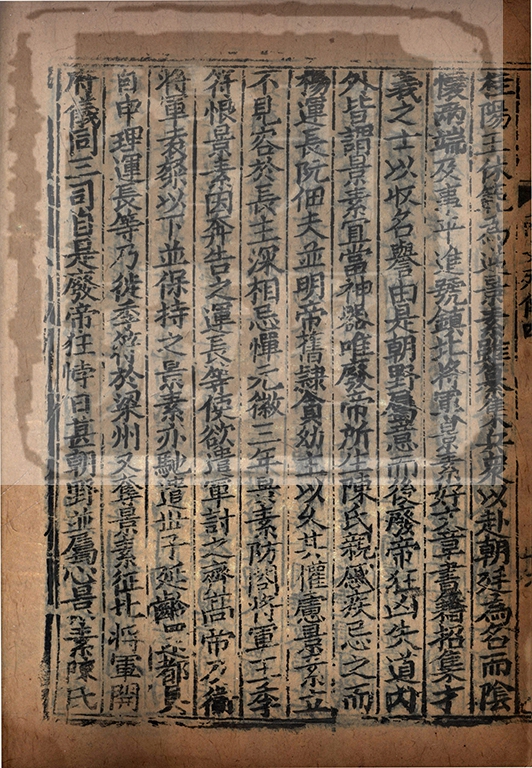 桂陽王休範為逆景素雖集兵衆以赴朝廷為名而陰
懷兩端及事平進號鎮北將軍景素好文章書籍招集才
義之士以收名譽由是朝野屬意而後廢帝狂凶失道内
外皆謂景素宜當神器唯廢帝所生陳氏親戚疾忌之而
楊運長阮佃夫並明帝舊隷貪幼主以久其權慮景素立
不見容於長主深相忌憚元徽三年景素防閤將軍王季
符恨景素因奔告之運長等便欲遣軍討之齊高帝及衛
將軍袁粲以下並保持之景素亦馳遣世子延齡還都具
自申理運長等乃徙季符於梁州又奪景素征北將軍開
府儀同三司自是廢帝狂悖日甚朝野並屬心景素陳氏